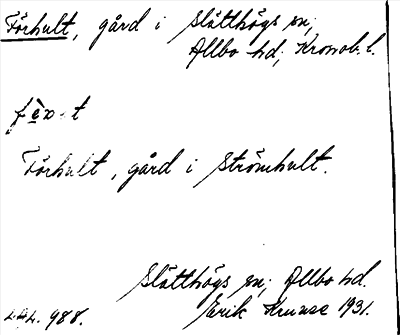 Förhult, gård i Slätthögs sn;
Allbo hd; Kronob. l.
Förhult, gård i Strömhult.
Slätthögs sn; Allbo hd.
988. Erik Kruuse 1931.